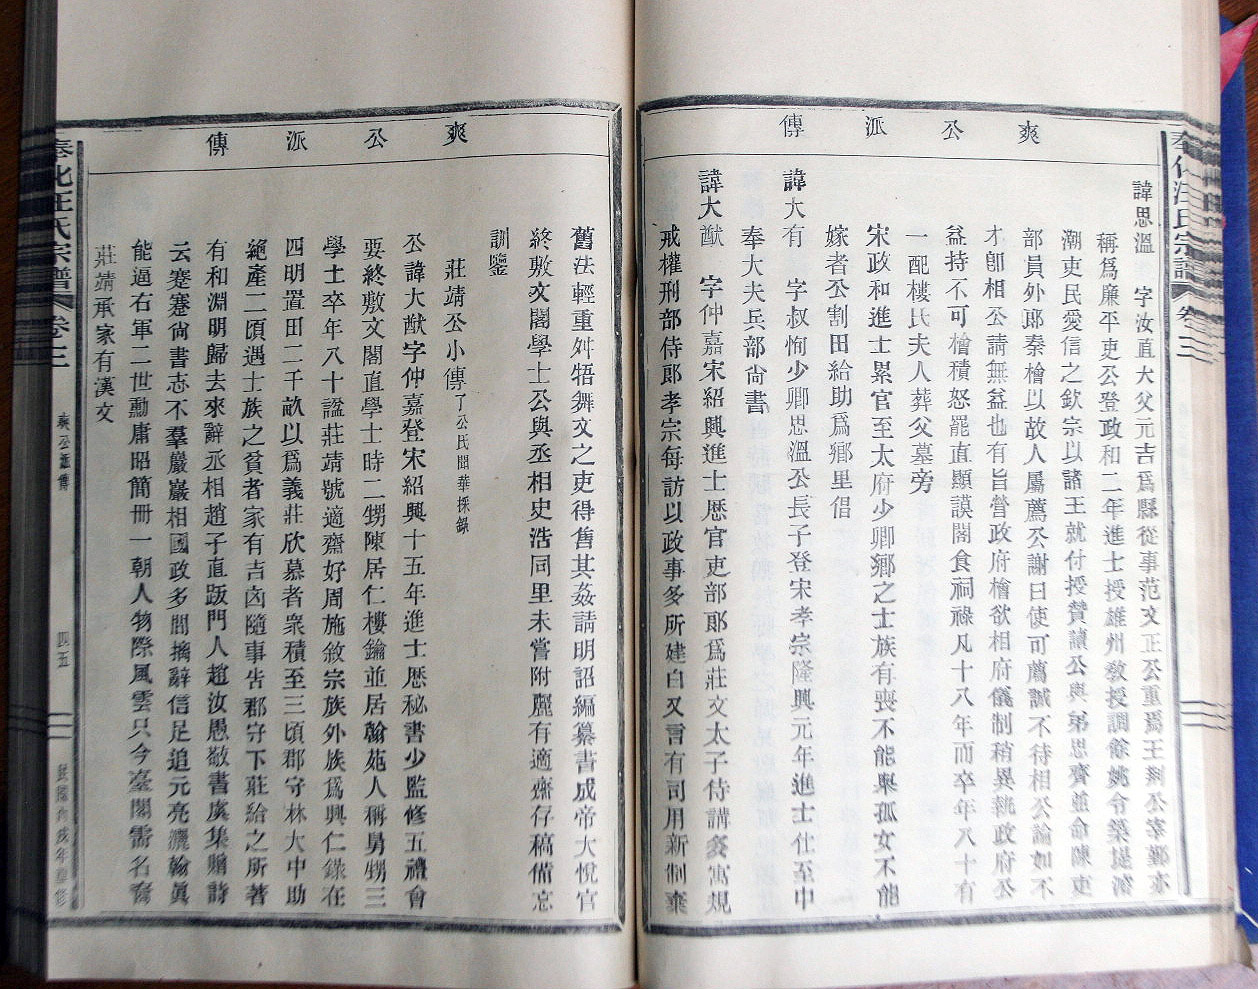 奉化汪氏宗譜 卷三
爽公派傳
諱思溫 字汝直大父元吉爲縣從事范文正公重焉王荆公宰鄞亦
稱爲廉平吏公登政和二年進士授雄州敎授調餘姚令築堤濬
潮吏民愛信之欽宗以諸王就付授贊讀公與弟思齊並命陳吏
部員外郞秦檜以故人屬薦公謝曰使可薦誠不待相公論如不
才卽相公請無益也有旨營政府檜欲相府儀制稍異執政府公
益持不可檜積怒罷直顯謨閣食祠祿凡十八年而卒年八十有
一配樓氏夫人葬父墓旁
宋政和進士累官至太府少卿鄉之士族有喪不能舉孤女不能
嫁者公割田給助爲鄉里倡
諱大有 字叔恂少卿思溫公長子登宋孝宗隆興元年進士仕至中
奉大夫兵部尙書
諱大猷 字仲嘉宋紹興進士歷官吏部郞爲莊文太子侍講多寓規
戒權刑部侍郞孝宗每訪以政事多所建白又言有司用新制棄
爽公派傳
舊法輕重舛牾舞文之吏得售其姦請明詔編纂書成帝大悅官
終敷文閣學士公與丞相史浩同里未嘗附麗有適齋存稿備忘
訓鑒
莊靖公小傳 了公氏聞華採錄
公諱大猷字仲嘉登宋紹興十五年進士歷秘書少監修五禮會
要終敷文閣直學士時二甥陳居仁樓鑰並居翰苑人稱舅甥三
學士卒年八十諡莊靖號適齋好周施敘宗族外族爲興仁錄在
四明置田二千畝以爲義莊欣慕者衆積至三頃郡守林大中助
絕產二頃遇士族之貧者家有吉凶隨事告郡守下莊給之所著
有和淵明歸去來辭丞相趙子直跋門人趙汝愚敬書虞集贈詩
云蹇蹇尙書志不羣巖巖相國政多聞摛辭信足追元亮灑翰眞
能逼右軍二世勳庸昭簡冊一朝人物際風雲只今臺閣需名裔
莊靖承家有漢文
奉化汪氏宗譜 卷三
爽公派傳
四五